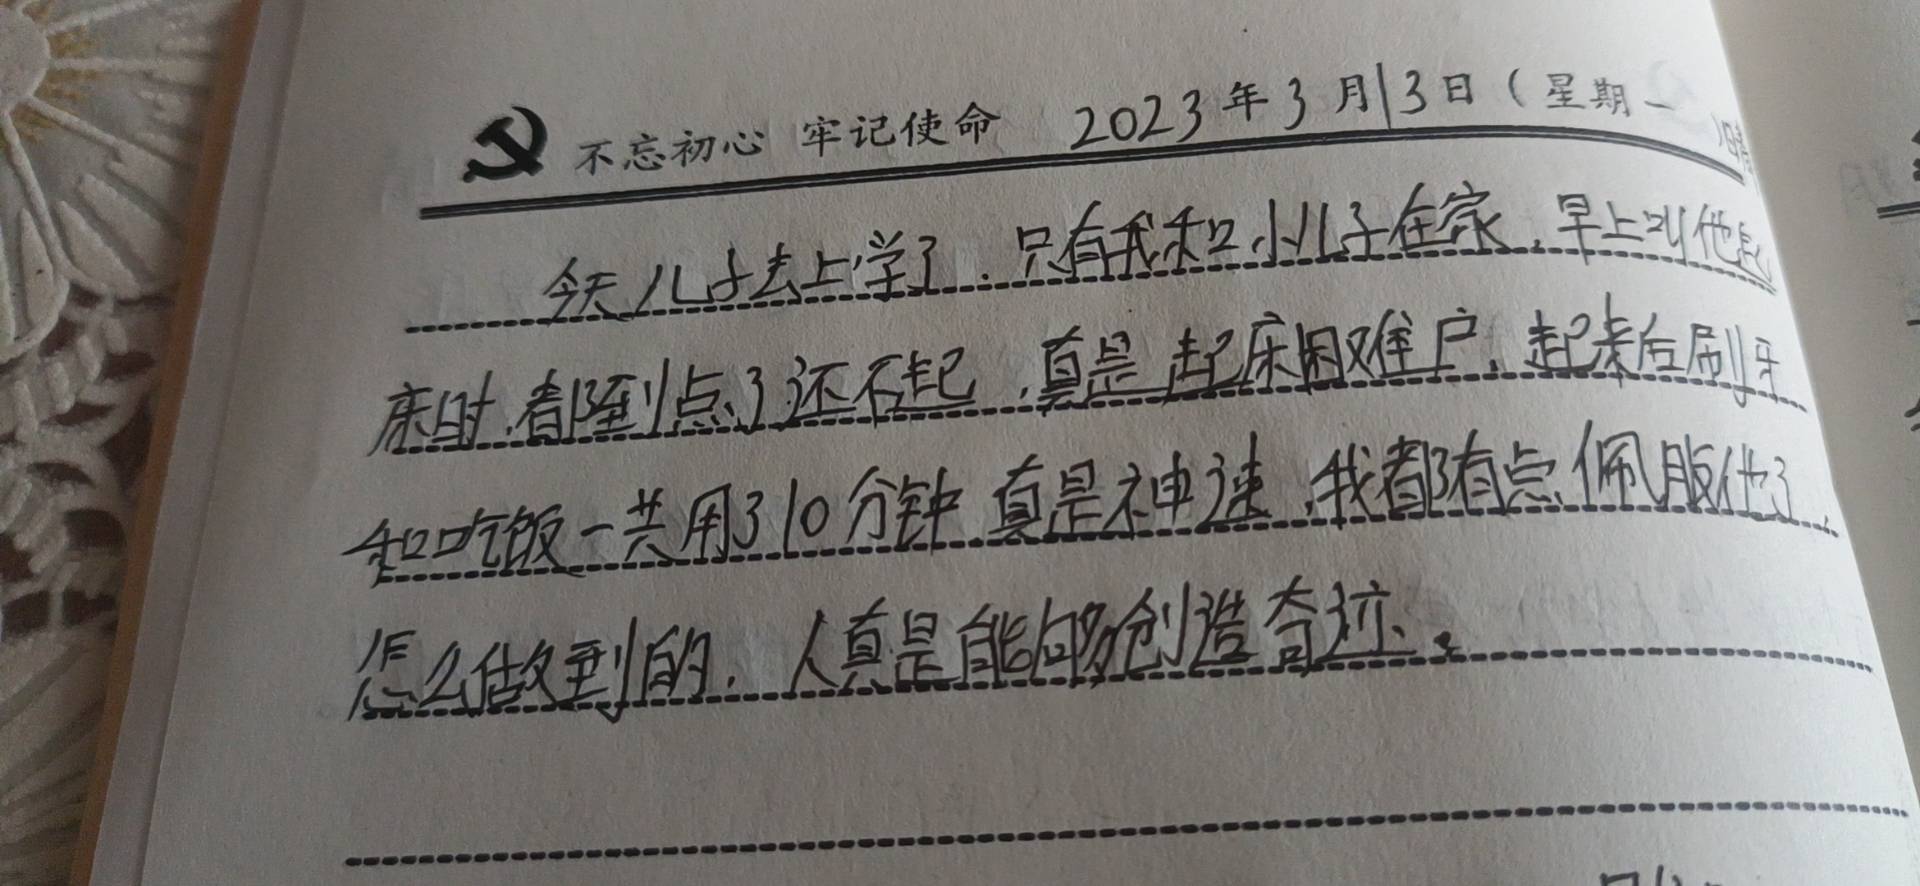 不忘初心 牢记使命 2023年3月13日(星期一
晴
今天儿子去上学了.只有我和小儿子在家.早上叫他起
床时.都到点了还不起.真是起床困难户.起来后刷牙
和吃饭一共用了10分钟 真是神速.我都有点佩服他了.
怎么做到的.人真是能够创造奇迹.